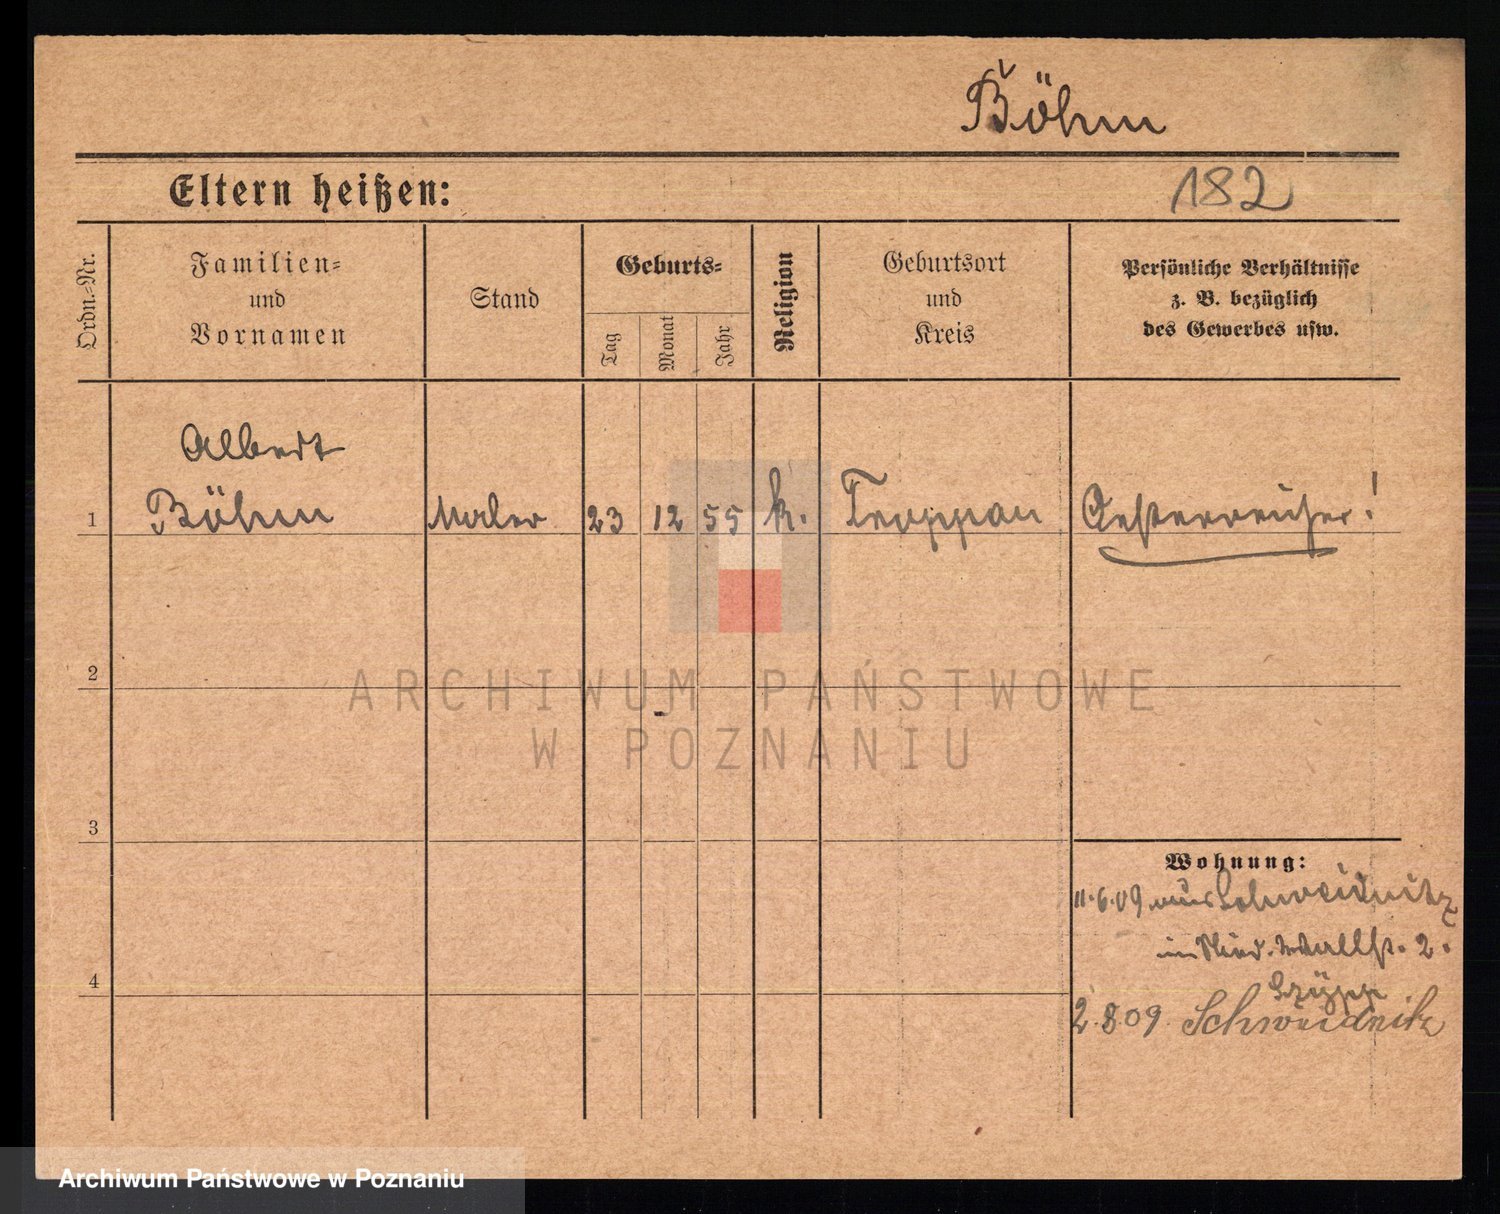 Böhm
Eltern heißen:
182
Ordn.-Nr.
Familien-
und
Vornamen
Stand
Geburts-
Tag
Monat
Jahr
Religion
Geburtsort
und
Kreis
Persönliche Verhältnisse
z. B. bezüglich
des Gewerbes usw.
Albert
1 Böhm Maler 23 12 55 k. Troppau Oesterreicher!
2
3
4
Wohnung:
11.6.09 aus Schweidnitz
in Nied. Wallst. 2.
2.8.09. Schweidnitz
ARCHIWUM PAŃSTWOWE
W POZNANIU
Archiwum Państwowe w Poznaniu